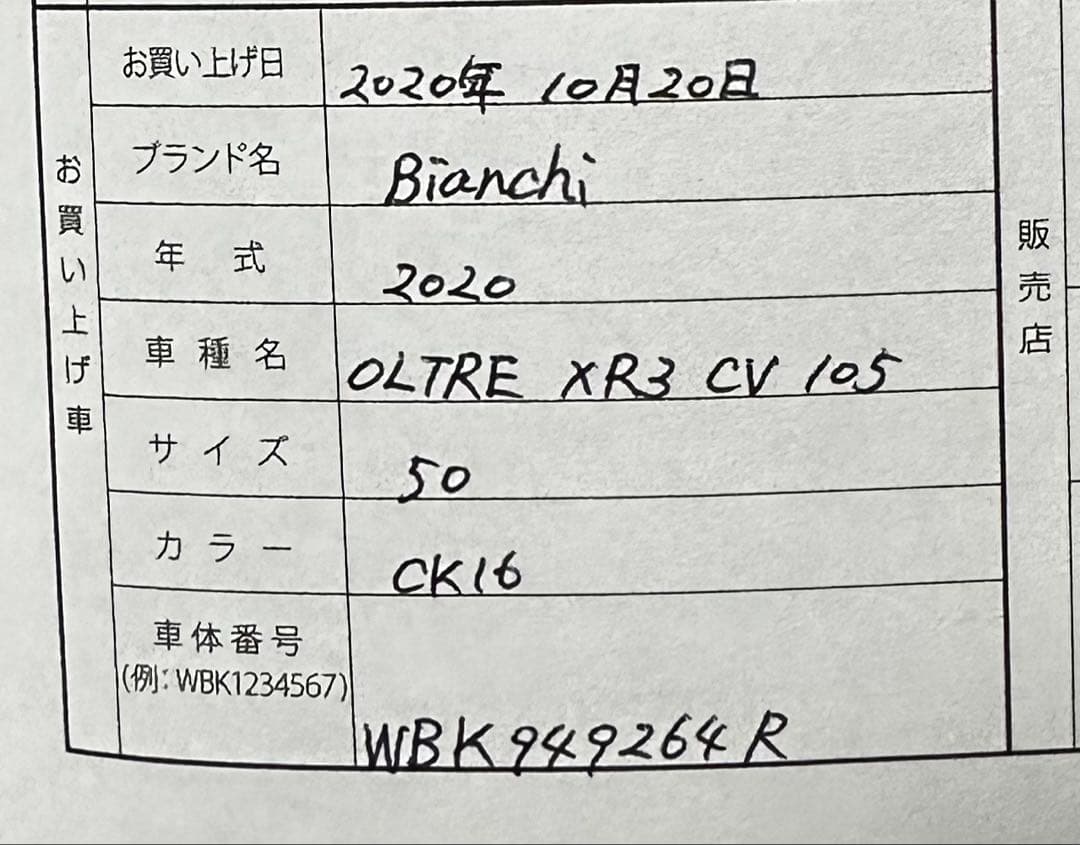 お買い上げ車
お買い上げ日 2020年 10月20日
ブランド名 Bianchi
年式 2020
車種名 OLTRE XR3 CV 105
サイズ 50
カラー CK16
車体番号
(例:WBK1234567)
WBK949264R
販売店